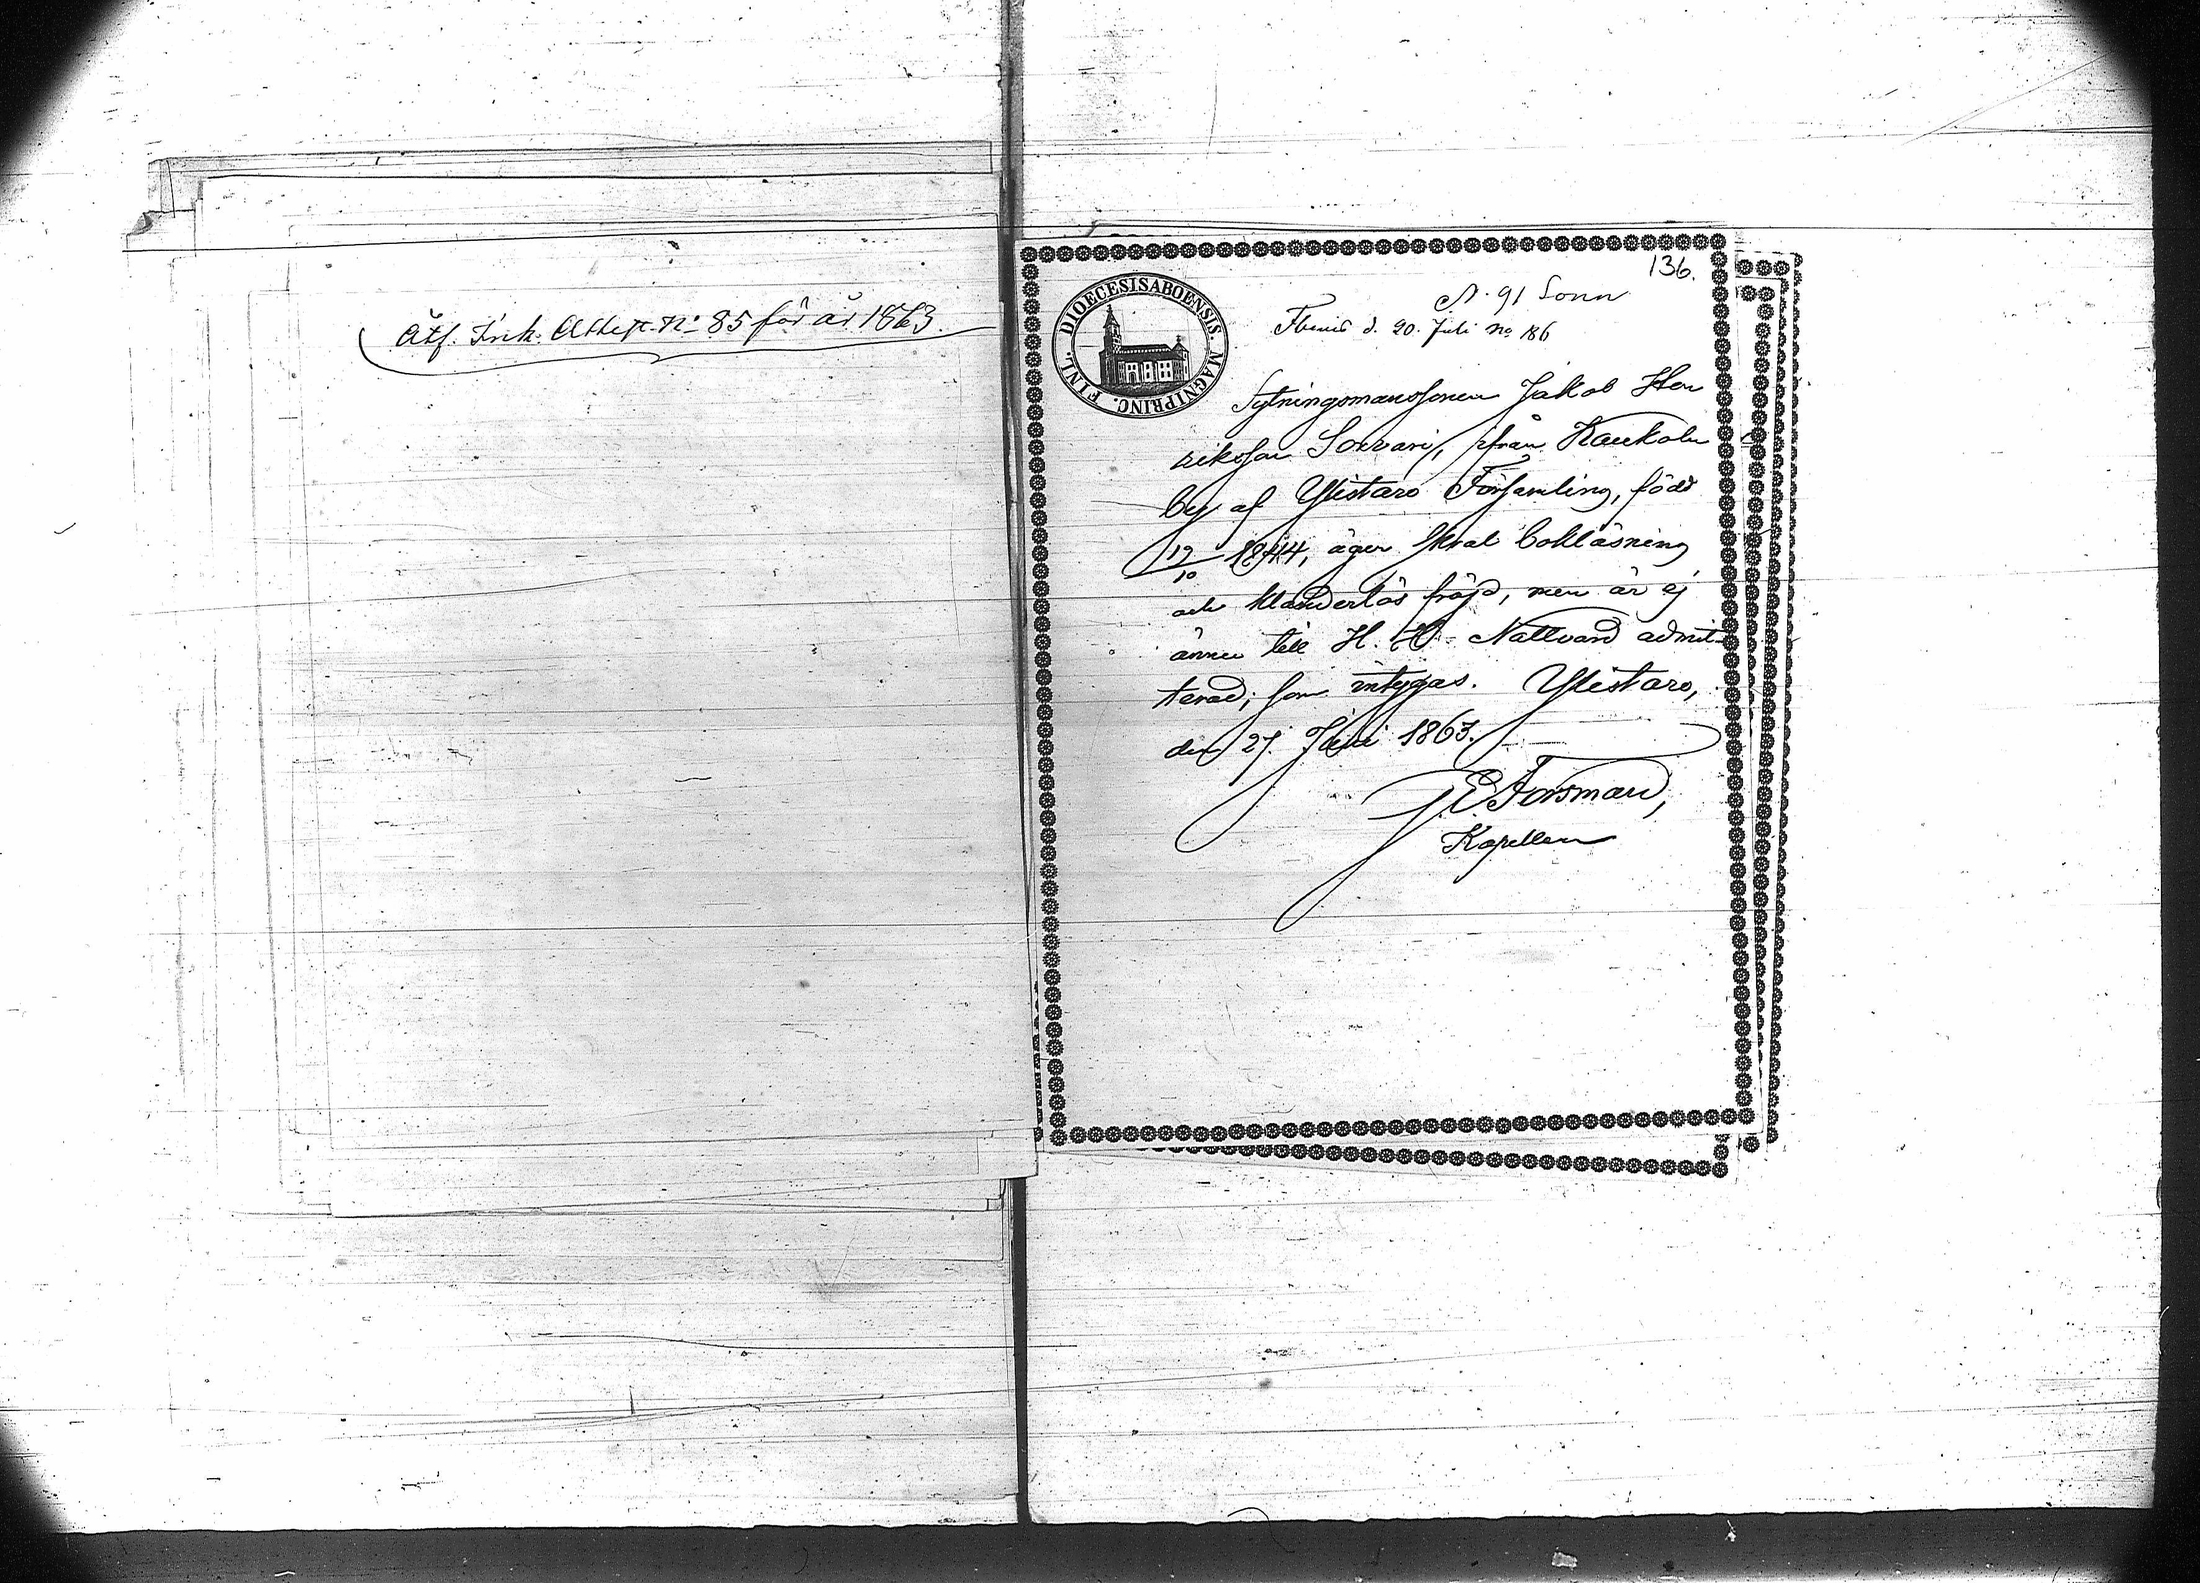 Åtf. Ink. Attest. No 85 för år 1863.
136.
N. 91 Sonn
DIOECESIS ABOENSIS. MAGNI PRINC. FINL.
d. 20. Juli No 186
Sytningsmanssonen Jakob Hen
riksson Sorvari, ifrån Kaukola
by af Ylistaro Församling, född
12/10 1844, äger skral bokläsning
och klanderlös fräjd, men är ej
ännu till H. H. Nattvard admit
terad; som intygas. Ylistaro,
den 27 Juni 1863.
J E Forsman,
Kapellan